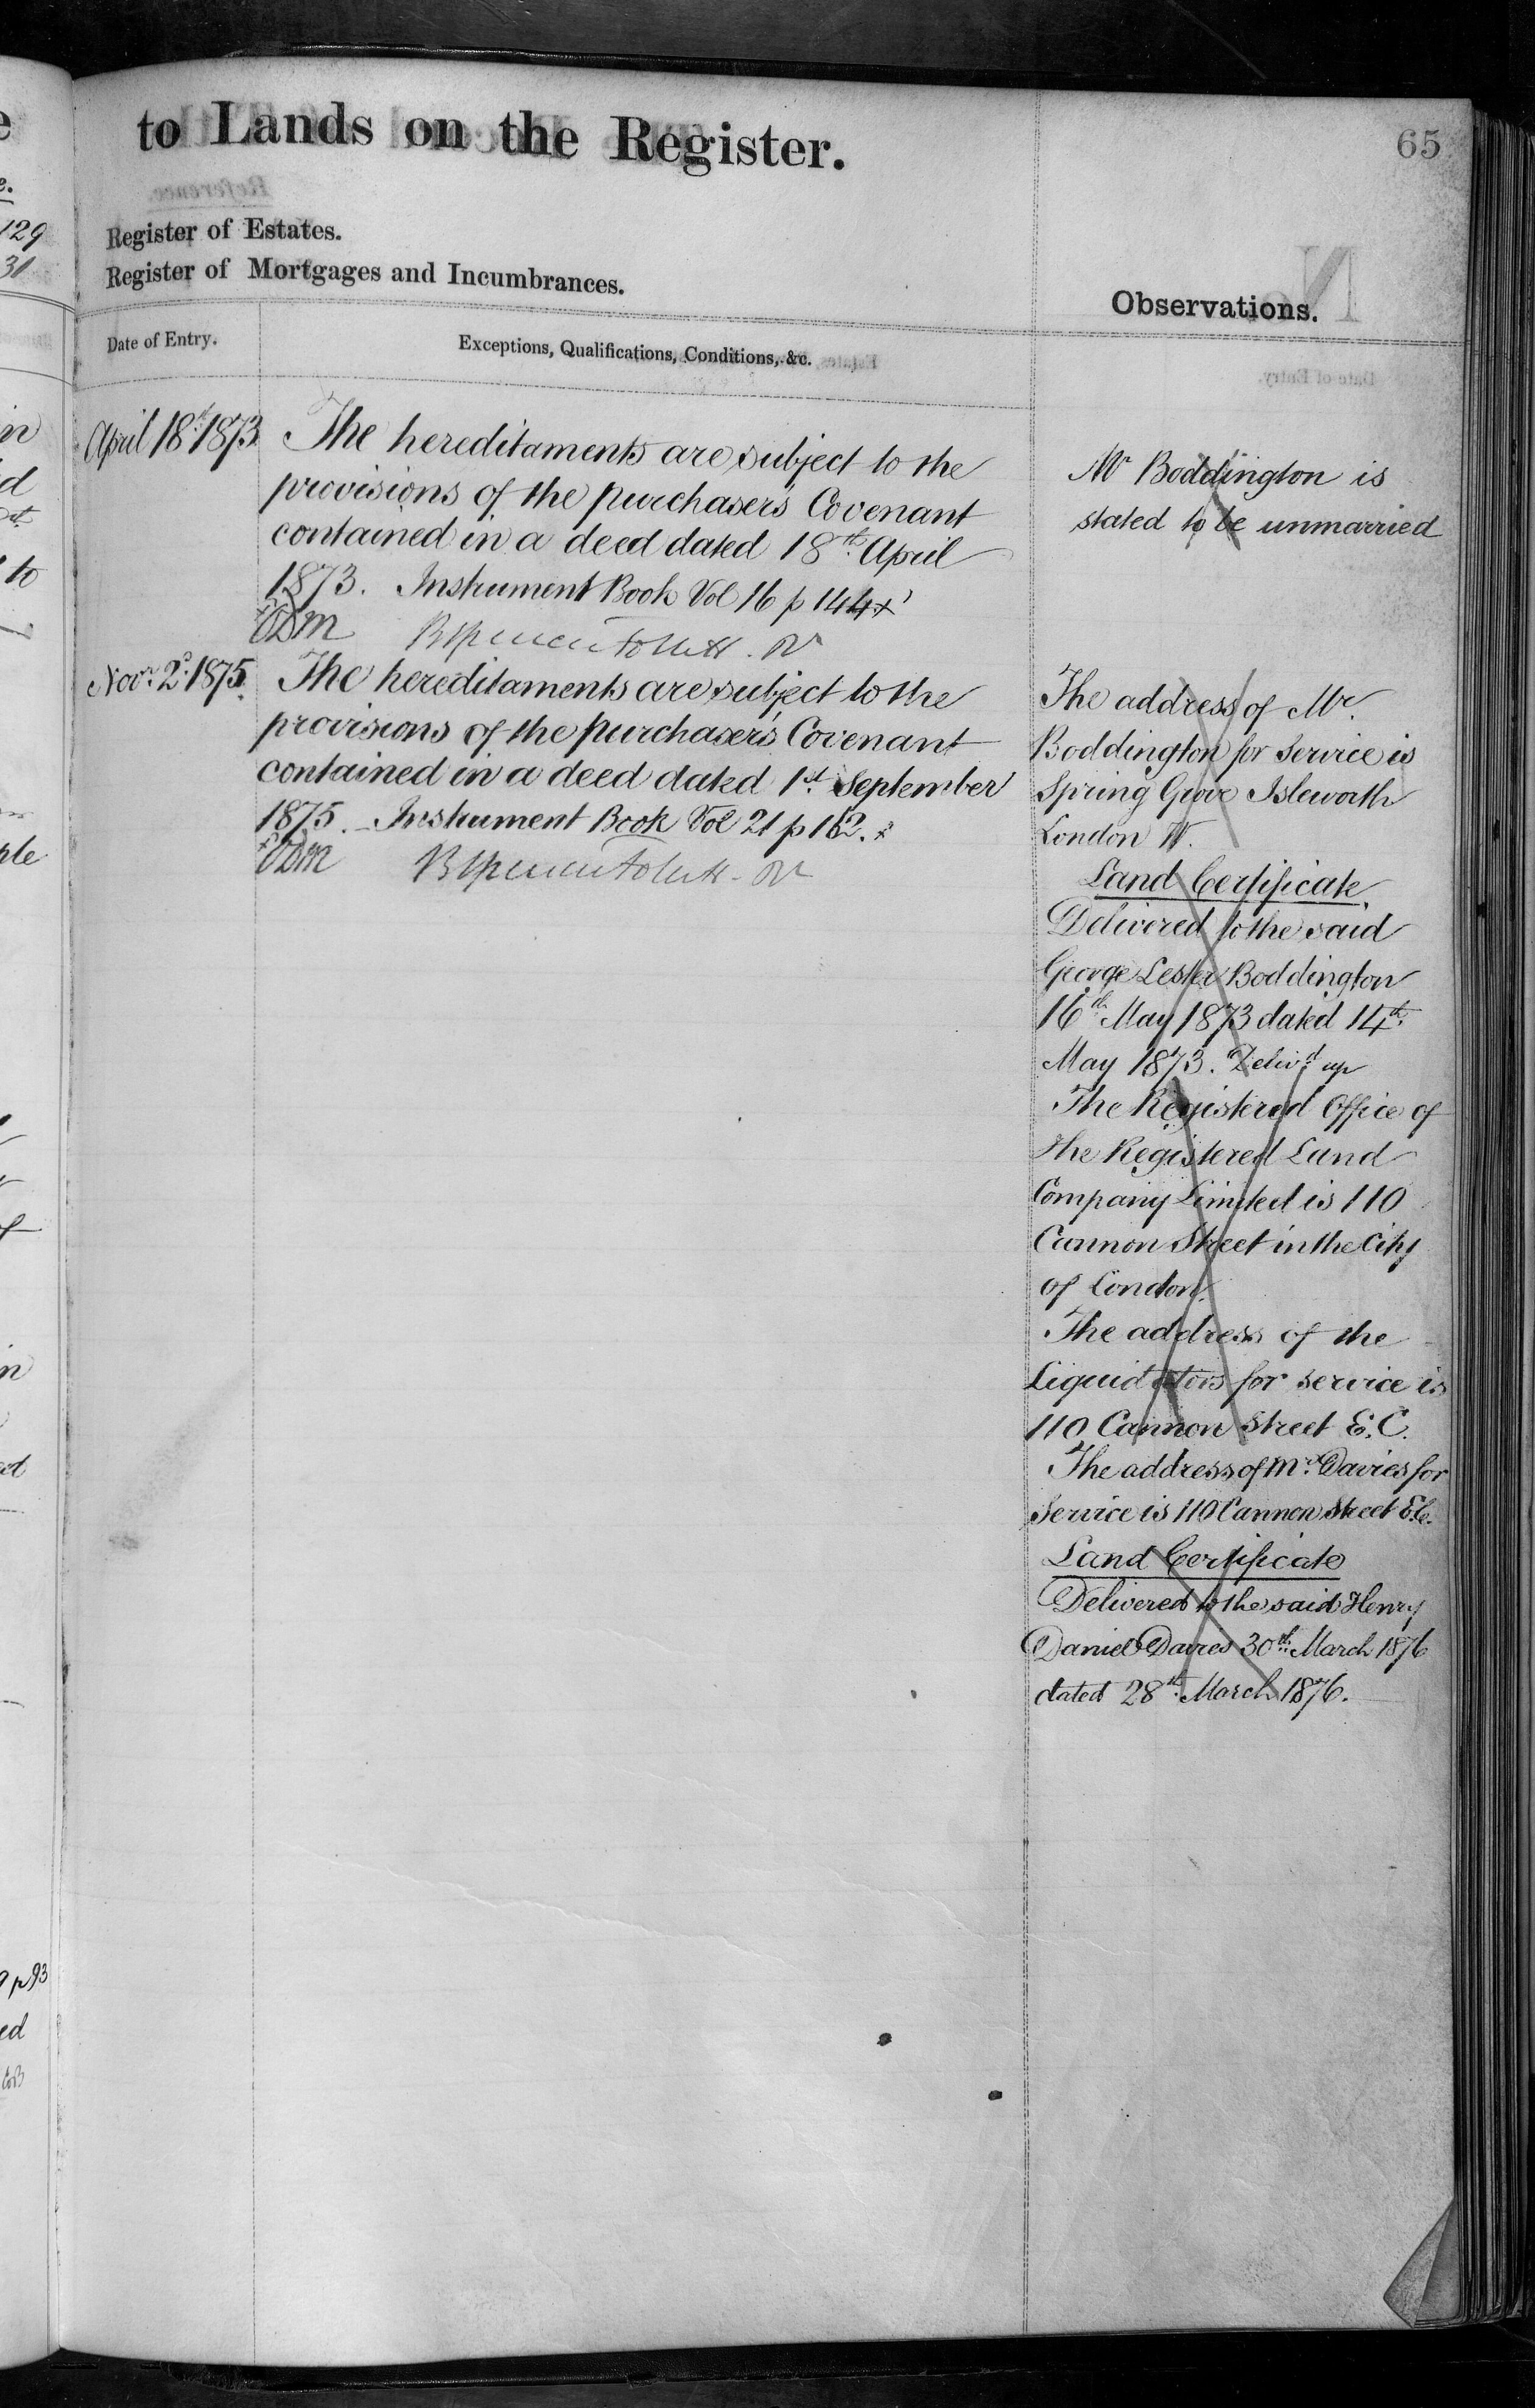 to Lands on the Register.
65
Register of Estates.
Register of Mortgages and Incumbrances.
Observations.
Date of Entry.
Exceptions, Qualifications, Conditions, &c.
April 18th 1873
The hereditaments are subject to the
provisions of the purchaser's Covenant
contained in a deed dated 18th April
1873. Instrument Book Vol 16 p 144 x
Novr. 2d. 1875
The hereditaments are subject to the
provisions of the purchaser's Covenant
contained in a deed dated 1st September
1875. Instrument Book Vol 21 p 162. x
Mr Boddington is
stated to be unmarried
The address of Mr.
Boddington for service is
Spring Grove Isleworth
London W.
Land Certificate.
Delivered to the said
George Lester Boddington
16th May 1873 dated 14th
May 1873. Delivd up
The Registered Office of
the Registered Land
Company Limited is 110
Cannon Street in the City
of London.
The address of the
Liquidators for service is
110 Cannon Street E.C.
The address of Mr. Davies for
Service is 110 Cannon Street E.C.
Land Certificate
Delivered to the said Henry
Daniel Davies 30th March 1876
dated 28th March 1876.
129
31
in
to
ple
in
p 93
ed